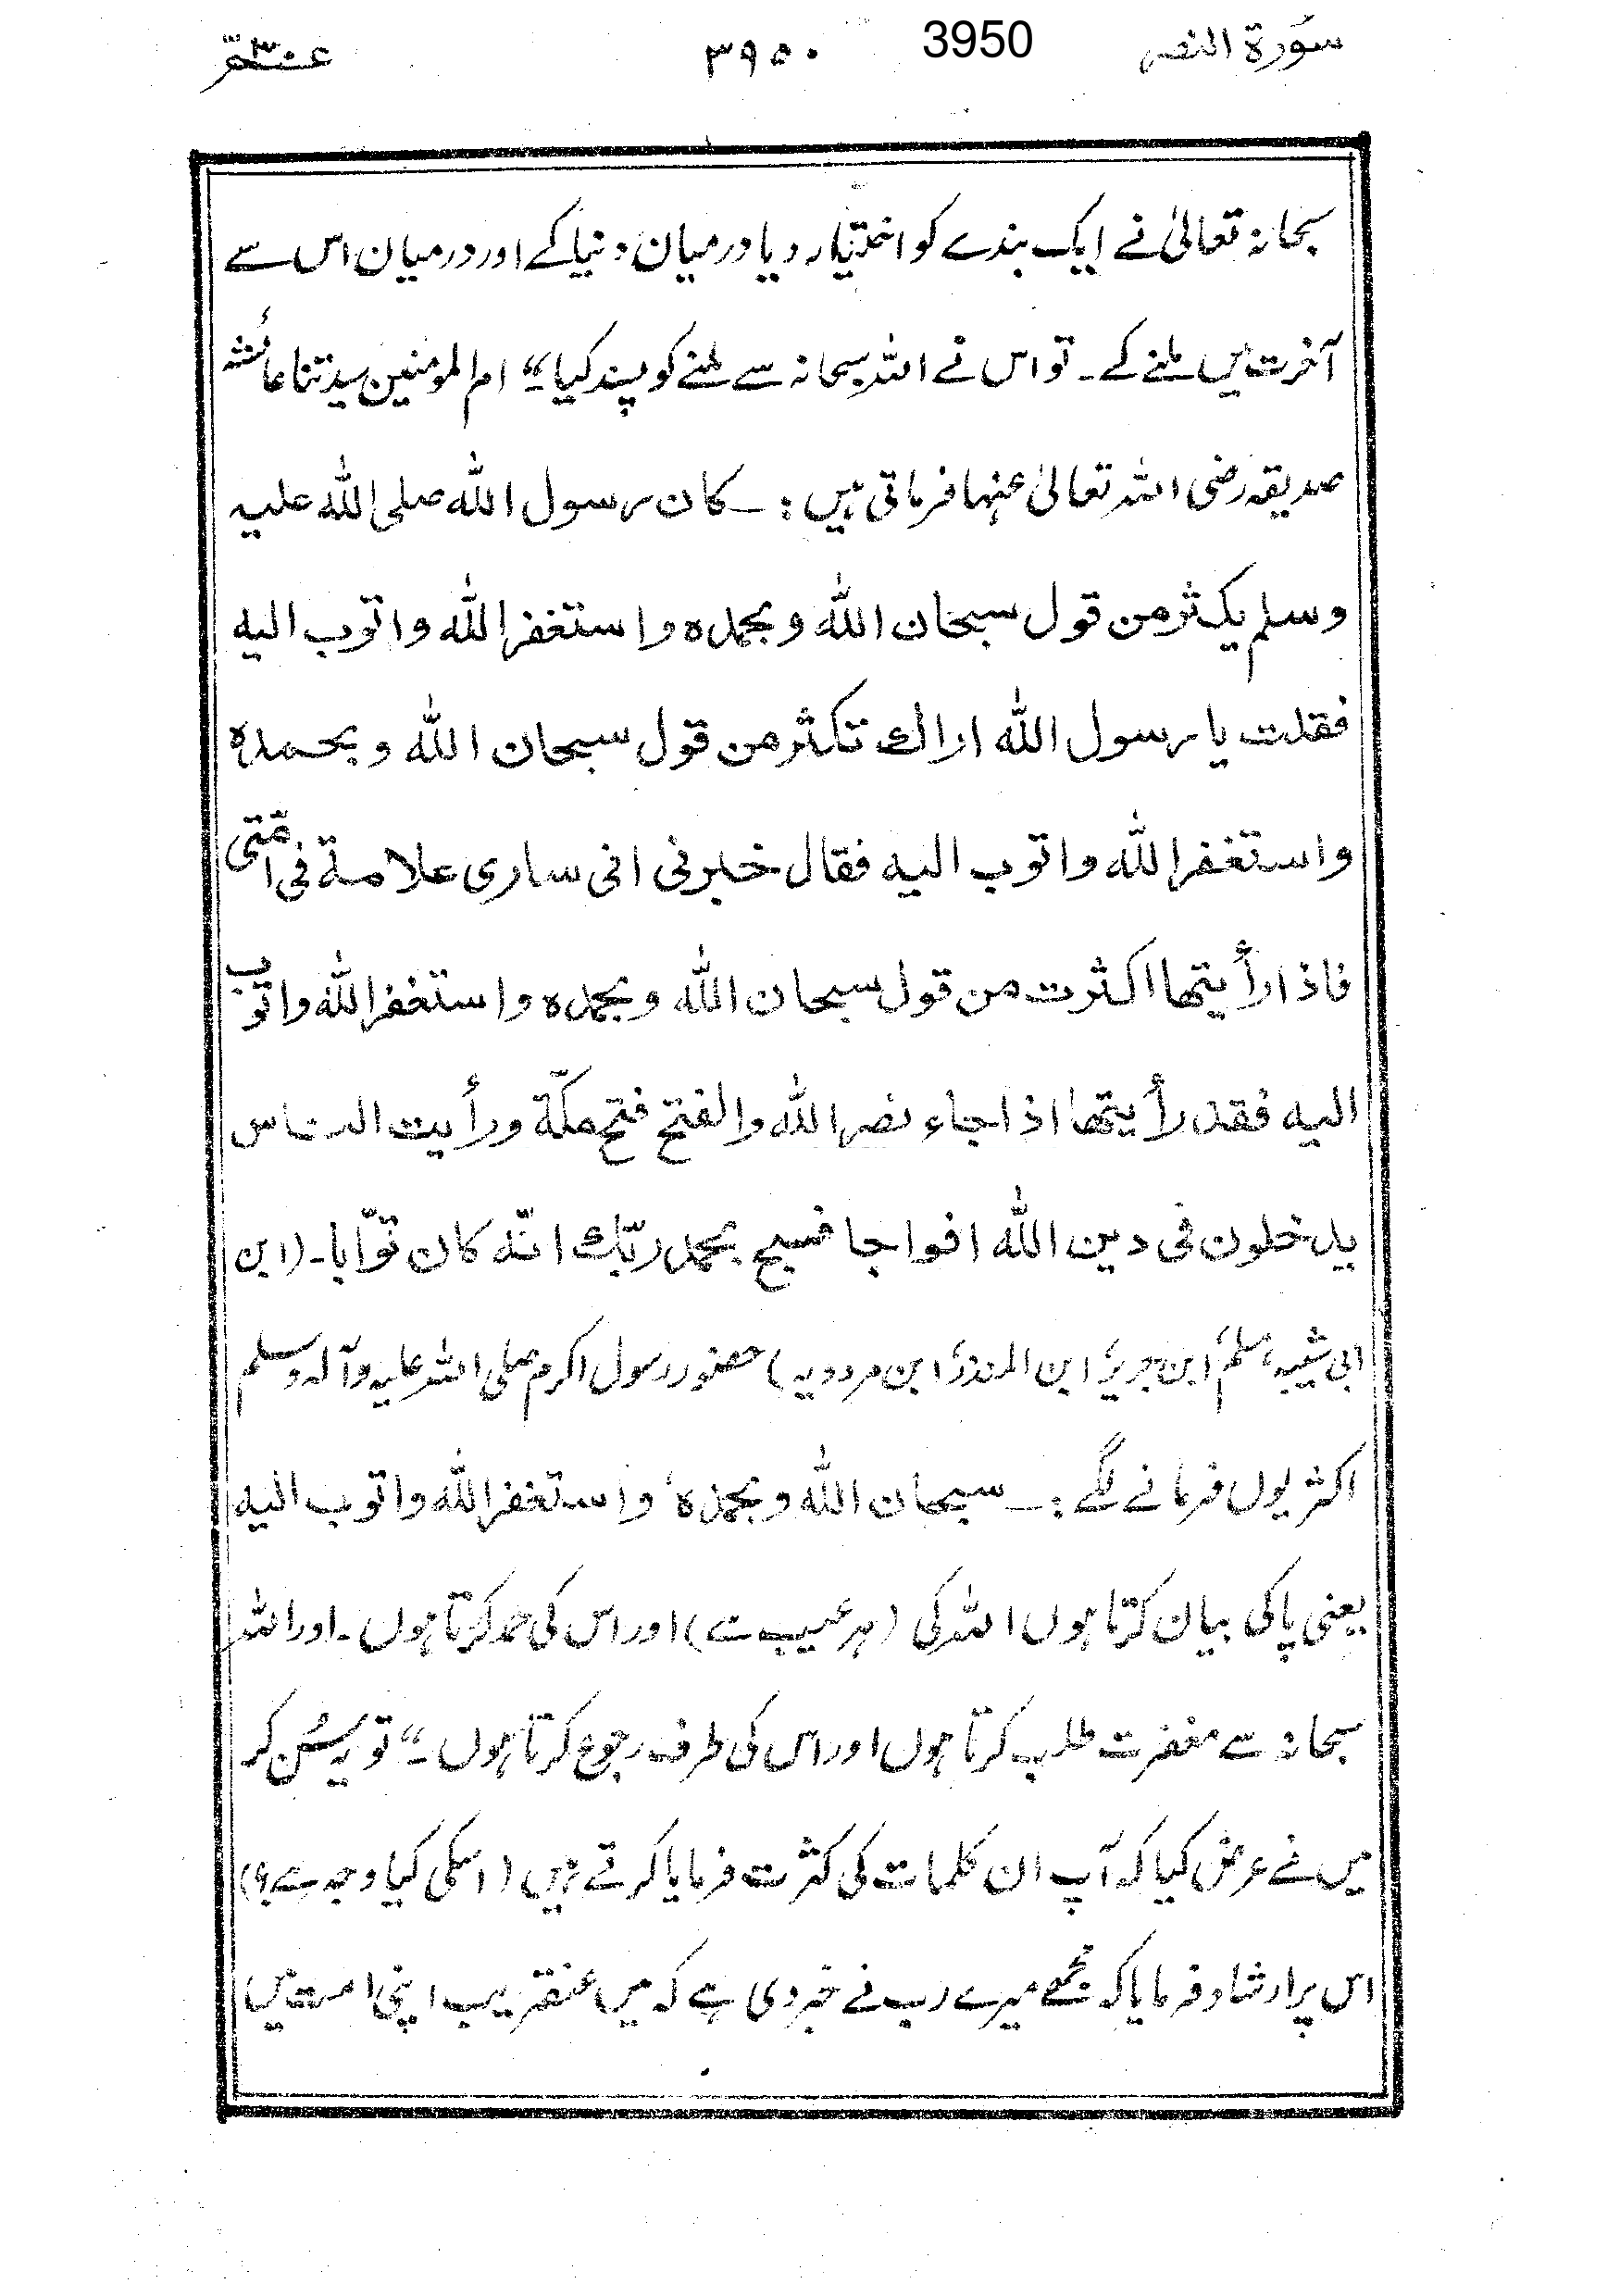 سورة النصر 3950 ٣٩٥٠ عـــم ٣٠
سبحانہ تعالیٰ نے ایک بندے کو اختیار دیا درمیان دنیا کے اور درمیان اس سے
آخرت میں ملنے کے۔ تو اس نے اللہ سبحانہ سے ملنے کو پسند کیا۔“ ام المومنین سیدتنا عائشہ
صدیقہ رضی اللہ تعالیٰ عنہا فرماتی ہیں :۔ کان رسول اللہ صلی اللہ علیہ
وسلم یکثر من قول سبحان اللہ وبحمدہ واستغفر اللہ واتوب الیہ
فقلت یا رسول اللہ اراك تکثر من قول سبحان اللہ وبحمدہ
واستغفر اللہ واتوب الیہ فقال خبرنی انی ساری علامة فی امّتی
فاذا رأیتھا اکثرت من قول سبحان اللہ وبحمدہ واستغفر اللہ واتوب
الیہ فقد رأیتھا اذا جاء نصر اللہ والفتح فتح مکّة ورأیت الناس
یدخلون فی دین اللہ افواجا فسبح بحمد ربّك انّه کان توّابا۔ (ابن
ابی شیبہ، مسلم، ابن جریر، ابن المنذر، ابن مردویہ) حضور رسول اکرم صلی اللہ علیہ وآلہ وسلم
اکثر یوں فرمانے لگے :۔ سبحان اللہ وبحمدہ، واستغفر اللہ واتوب الیہ
یعنی پاکی بیان کرتا ہوں اللہ کی (ہر عیب سے) اور اس کی حمد کرتا ہوں۔ اور اللہ
سبحانہ سے مغفرت طلب کرتا ہوں اور اس کی طرف رجوع کرتا ہوں۔“ تو یہ سُن کر
میں نے عرض کیا کہ آپ ان کلمات کی کثرت فرمایا کرتے ہیں (اسکی کیا وجہ ہے؟)
اس پر ارشاد فرمایا کہ مجھے میرے رب نے خبر دی ہے کہ میں عنقریب اپنی امت میں